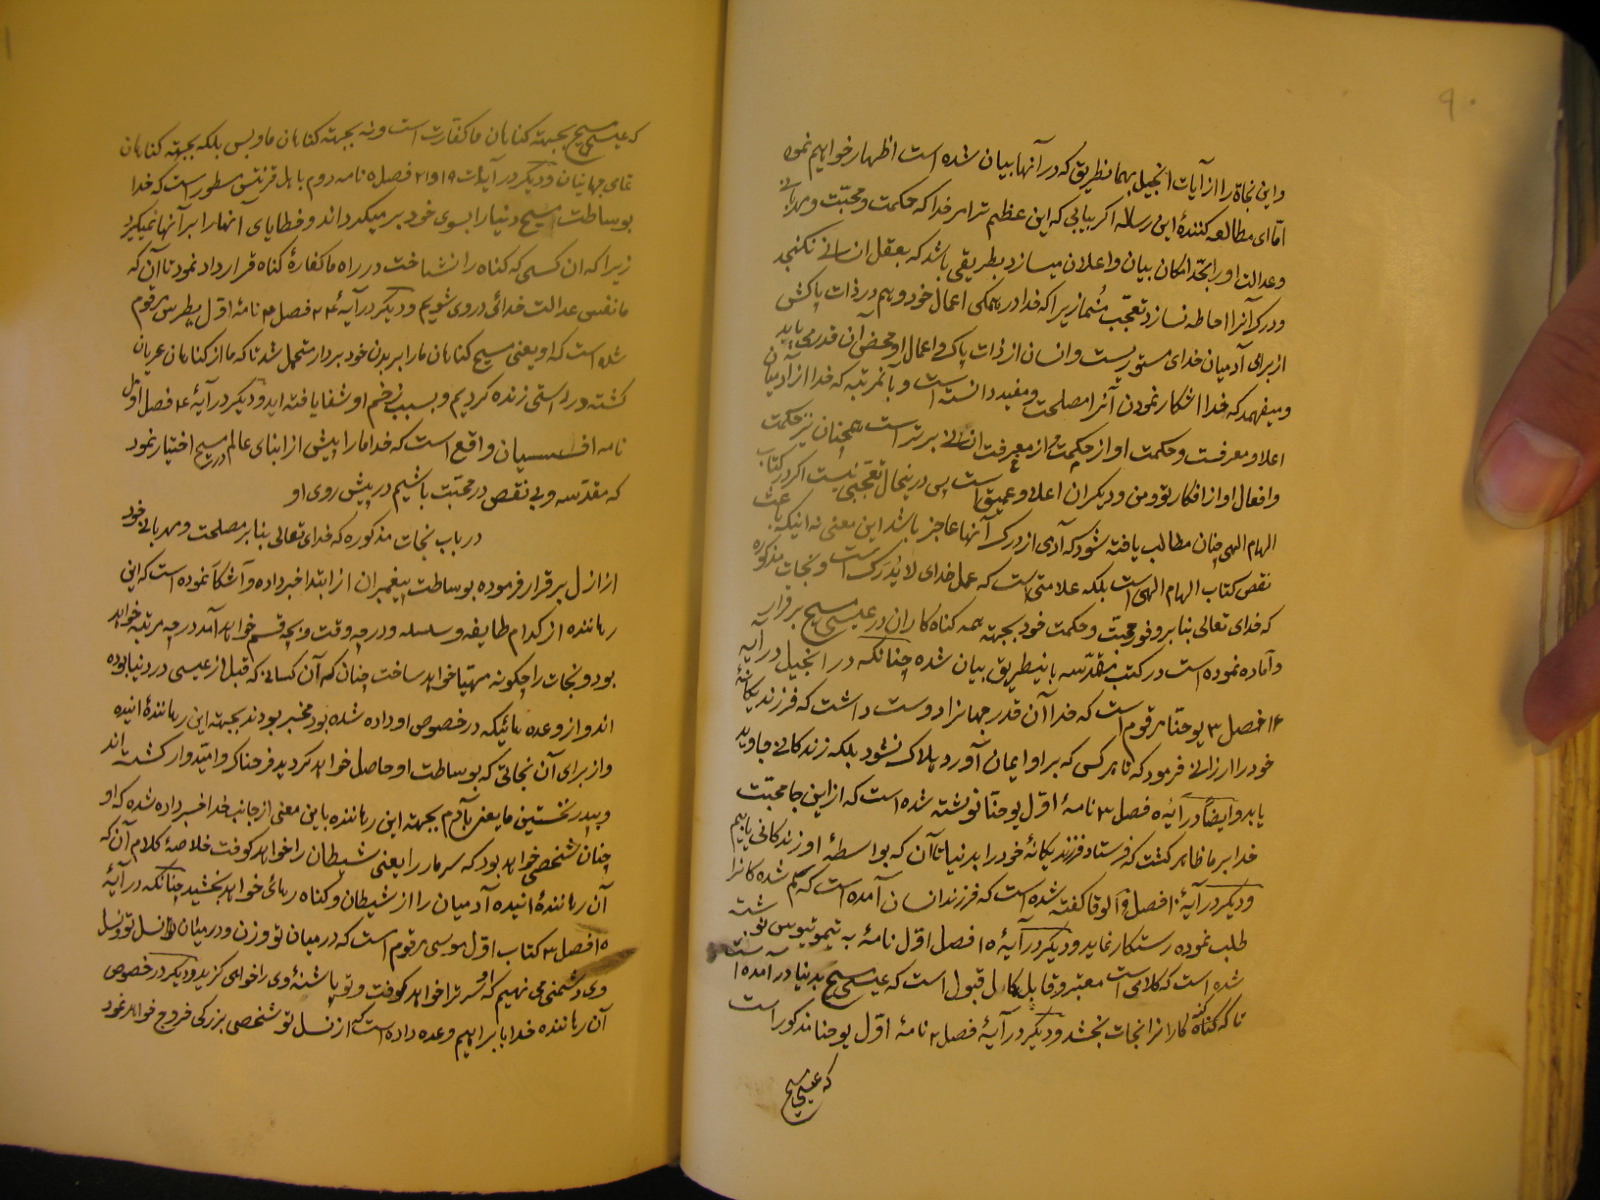 ۹۰
و این نجاة را از آیات انجیل بهمانطریق که در آنها بیان شده است اظهار خواهیم نمود
امّا ای مطالعه کنندهٔ این رساله اگر بیابی که این عظیم‌ تر امر خدا که حکمت و محبّت و مهربانی
و عدالت او را بحدّ امکان بیان و اعلان میسازد بطریقی باشد که بعقل انسانی نکنجد
و درک آنرا احاطه نسازد تعجّب مُنما زیرا که خدا در همکی اعمال خود و هم در ذات پاکش
از برای آدمیان خدای مستوریست و انسان از ذات پاک و اعمال او محض آن قدر می یابد
و میفهمد که خدا اشکار نمودن آنرا مصلحت و مفید دانسته است و بآنمرتبه که خدا از آدمیان
اعلا و معرفت و حکمت او از حکمت و معرفت انسانی برتر است همچنان نیز حکمت
و افعال او از افکار تو و من و دیکران اعلا و عمیق است پس درینحال تعجّبی نیست اکر در کتاب
الهام الهی چنان مطالب یافته شود که آدمی از درک آنها عاجز باشد این معنی نه اینکه باعث
نقص کتاب الهام الهی است بلکه علامتی است که عمل خدای لا یُدرَک است و نجات مذکوره
که خدای تعالی بنا بر وفور محبّت و حکمت خود بجهته همه کناه کاران در عیسی مسیح برقرار
و آماده نموده است در کتب مقدّسه باینطریق بیان شده چنانکه در انجیل در آیه
۱۶ فصل ۳ یوحنا مرقوم است که خدا آن قدر جهانرا دوست داشت که فرزند یکانهٔ
خود را ارزانی فرمود که تا هر کس که بر او ایمان آورد هلاک نشود بلکه زندکانی جاوید
یابد و ایضاً در آیه ۵ فصل ۳ نامهٔ اوّل یوحنّا نوشته شده است که از این جا محبّت
خدا بر ما ظاهر کشت که فرستاد فرزند یکانهٔ خود را بدنیا تا آن که بواسطهٔ او زندکانی یابیم
و دیکر در آیهٔ ۱۰ فصل ۱۹ لوقا کفته شده است که فرزند انسان آمده است که کم شده کانرا
طلب نموده رستکار نماید و دیکر در آیهٔ ۱۵ فصل اوّل نامهٔ به تیموتیوس نوشته
شده است که کلامی است معتبر و قابل کمال قبول است که عیسی مسیح بدنیا در آمده است
تا که کناه کارانرا نجات بخشد و دیکر در آیهٔ فصل ۲ نامهٔ اوّل یوحنا مذکور است
که عیسی مسیح
که عیسی مسیح بجهته کناهان ما کفّارت است و نه بجهته کناهان ما و بس بلکه بجهته کناهان
تمای جهانیان و دیکر در آیات ۱۹ و ۲۱ فصل ۵ نامه دوم باهل قرنتس مسطور است که خدا
بوساطت مسیح دنیا را بسوی خود بر میکرداند و خطایای آنها را بر آنها نمیکیرد
زیرا که ان کسی که کناه را نشناخت در راه ما کفارهٔ کناه قرار داد نمود تا آن که
ما نفس عدالت خدائی در وی شویم و دیکر در آیهٔ ۲۴ فصل ۲ نامهٔ اوّل پطرس مرقوم
شده است که او یعنی مسیح کناهان ما را بر بدن خود بردار متحمل شد تا که ما از کناهان عریان
کشته در راستی زنده کردیم و بسبب زخم او شفا یافته اید و دیکر در آیهٔ ۴ فصل اوّل
نامه افسسیان واقع است که خدا ما را پیش از ابنای عالم در مسیح اختیار نمود
که مقدّسه و بی نقص در محبّت باشیم در پیش روی او
در باب نجات مذکوره که خدای تعالی بنا بر مصلحت و مهربانی خود
از ازل برقرار فرموده بوساطت پیغمبران از ابتدا خبر داده و آشکار نموده است که این
رهاننده از کدام طایفه و سلسله و در چه وقت و بچه قسم خواهد آمد در چه مرتبه خواهد
بود و نجات را چکونه مهیّا خواهد ساخت چنان که آن کسانی که قبل از عیسی در دنیا بوده
اند و از وعده هائیکه در خصوص او داده شده بود مخبر بودند بجهته این رهانندهٔ آئیده
و از برای آن نجاتی که بوساطت او حاصل خواهد کردید فرحناک و امیّدوار کشته اند
و پدر نخستین ما یعنی بآدم بجهته این رهاننده باین معنی از جانب خدا خبر داده شده که او
چنان شخصی خواهد بود که سر مار را یعنی شیطان را خواهد کوفت خلاصهٔ کلام آن که
آن رهانندهٔ ائیده آدمیان را از شیطان و کناه رهائی خواهد بخشید چنانکه در آیهٔ
۱۵ فصل ۳ کتاب اوّل موسی مرقوم است که در میان تو و زن و در میان نسل تو و نسل
وی دشمنی می نهیم که او سر ترا خواهد کوفت و تو پاشنهٔ وی را خواهی کزید و دیکر در خصوص
آن رهاننده خدا با ابراهیم وعده داده است که از نسل تو شخصی بزرکی خروج خواهد نمود